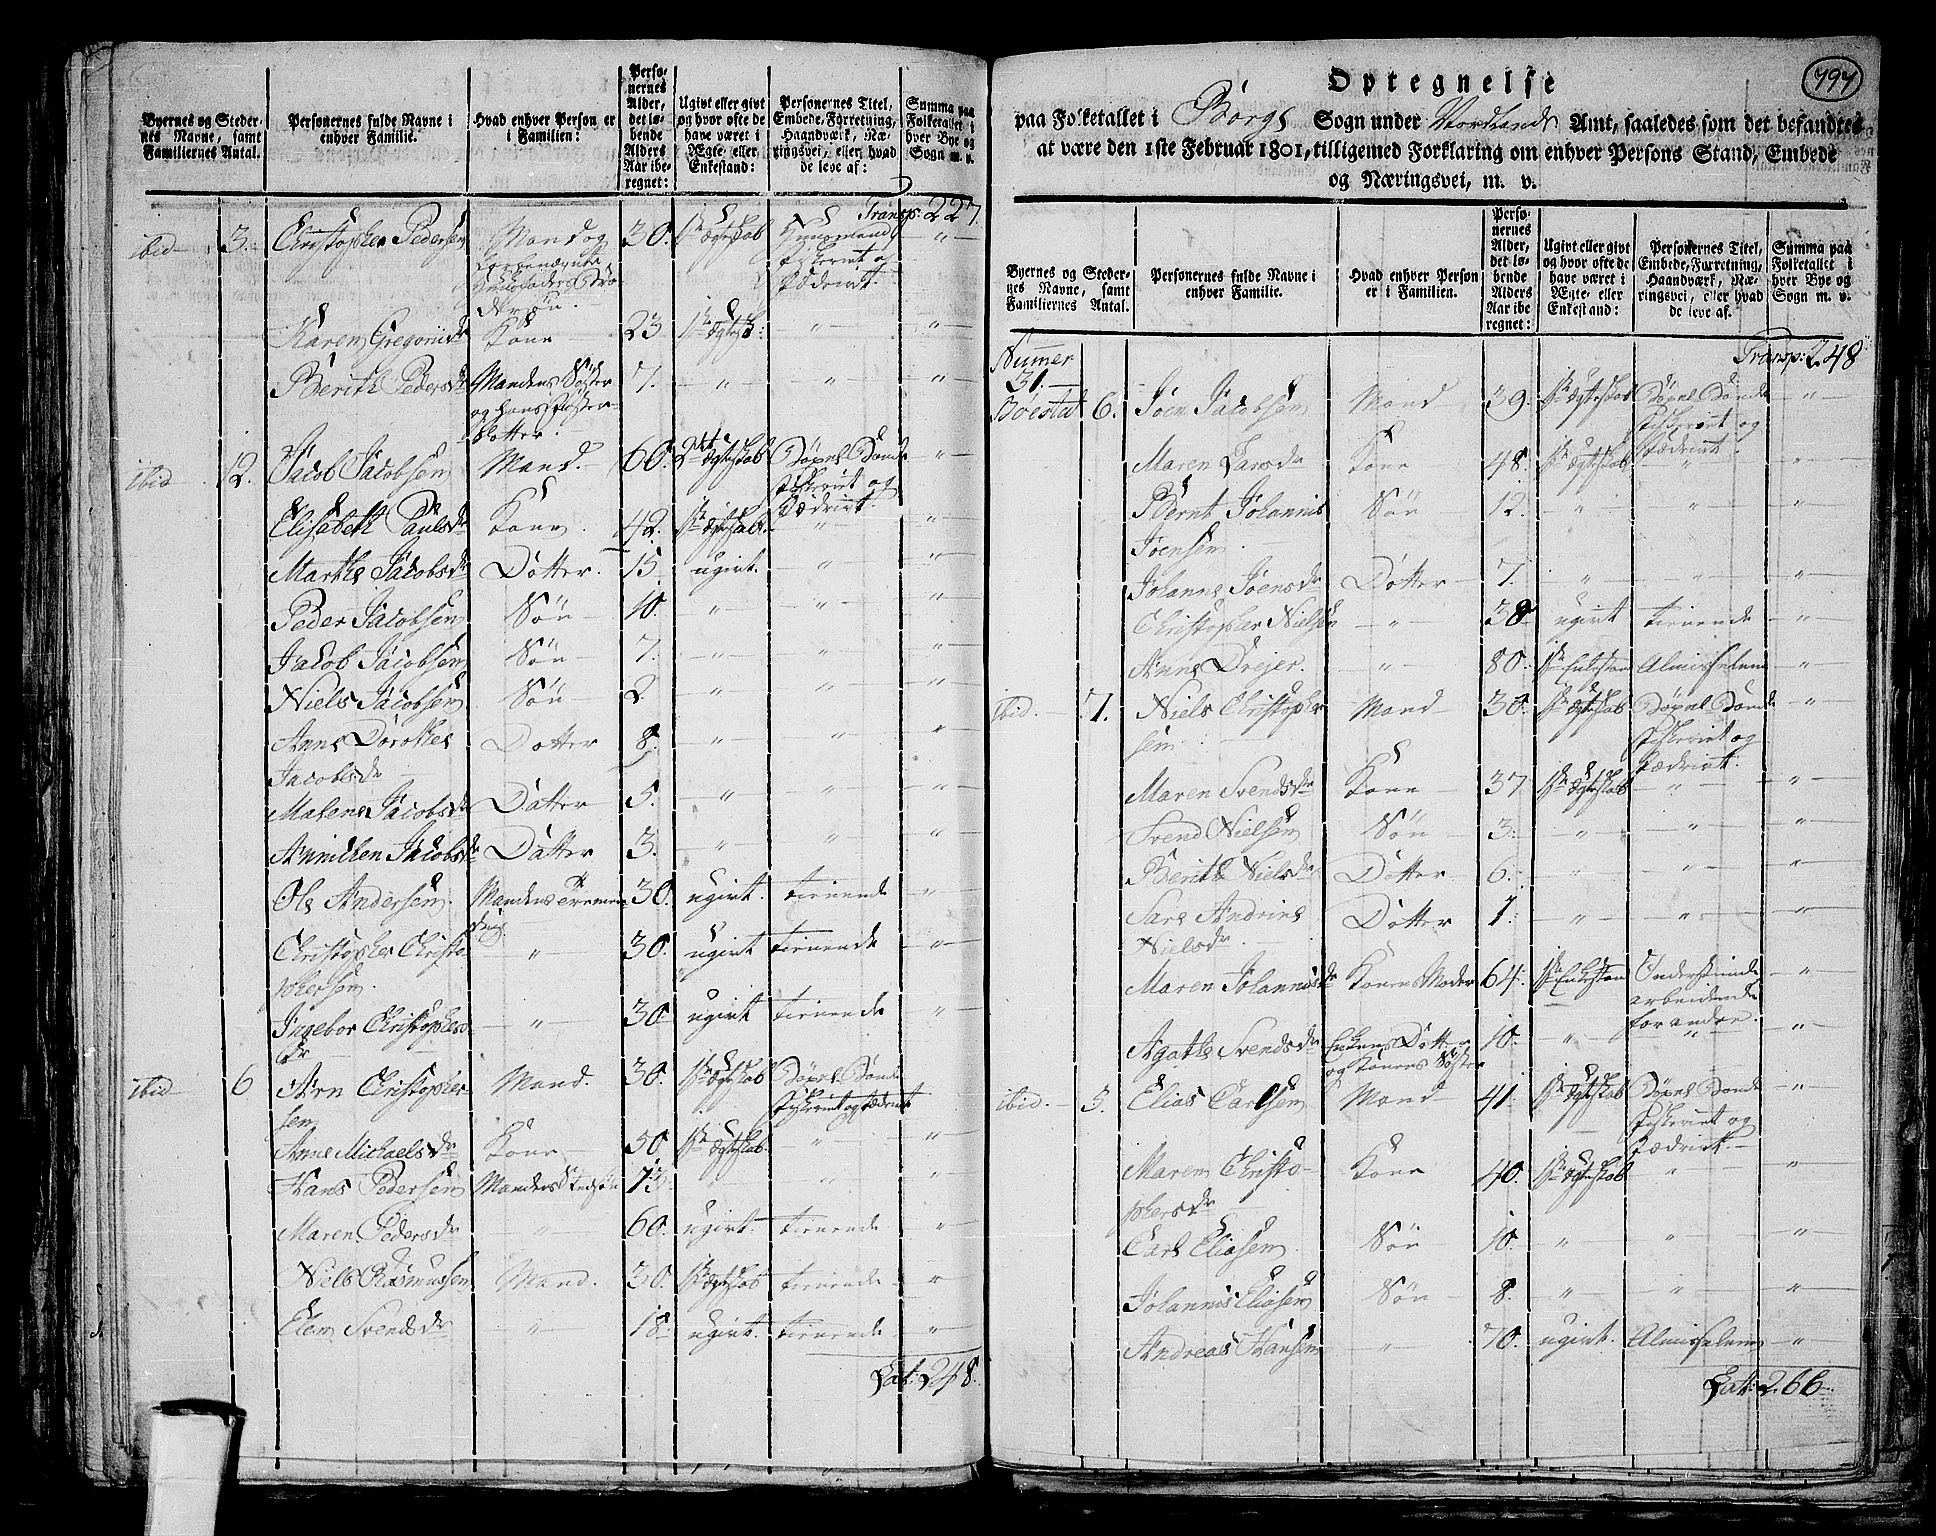 Byernes og Steder-
nes Navne, samt
Familiernes Antal.
Personernes fulde Navne i
enhver Familie.
Hvad enhver Person er
i Familien:
Perso-
nernes
Alder,
det lø-
bende
Alders
Aar ibe-
regnet:
Ugivt eller givt
og hvor ofte de
have været i
Ægte- eller
Enkestand:
Personernes Titel,
Embede, Forretning,
Haandværk, Næ-
ringsvei, eller hvad
de leve af:
Summa paa
Folketallet i
hver Bye og
Sogn m. v.
Transp: 227.
ibid 3. Christopher Pedersen Mand og 30. 1ste Ægteskab Huusmand "
Fiskerie og
Sædrivt.
Karen Gregorii Dr Kone 23 1ste Ægtesk: " "
Berith Peders Dr Mandens Søster 7. " " "
og hans Foster-
Dotter.
ibid 12. Jacob Jacobsen Mand. 60. 2det Ægteskab Bøxel Bonde "
Fiskerie og
Sædrivt.
Elisabeth Pauls Dr Kone. 42. 1ste Ægteskab " "
Marthe Jacobs Dr Dotter. 15 ugivt. " "
Peder Jacobsen Søn 10. " " "
Jacob Jacobsen Søn 7. " " "
Niels Jacobsen Søn 2 " " "
Anne Dorothea Dotter 8. " " "
Jacobs Dr
Malene Jacobs Dr Datter 5. " " "
Annichen Jacobs Dr Datter 3. " " "
Ole Andersen Mandens Fremen- 30. ugivt. tienende "
Christopher Christo- " 30. ugivt tienende "
phersen.
Ingebor Christophers " 30 ugivt tienende "
Dr
ibid 6 Arn Christopher- Mand. 30. 1ste Ægteskab Bøxel Bonde
sen Fiskerie og Sædrivt "
Anne Michaels Dr Kone 50 1ste Ægteskab. " "
Hans Pedersen Mandens Stedsøn 13. " " "
Maren Peders Dr " 60. ugivt tienende "
Niels Rasmussen Mand. 30. 1ste Ægteskab tienende "
Elen Svends Dr " 18. ugivt. tienende "
Lat: 248.
797
Optegnelse
paa Folketallet i Borge Sogn under Nordlands Amt, saaledes som det befandtes
at være den 1ste Februar 1801, tilligemed Forklaring om enhver Persons Stand, Embede
og Næringsvei, m. v.
Byernes og Steder-
nes Navne, samt
Familiernes Antal.
Personernes fulde Navne i
enhver Familie.
Hvad enhver Person
er i Familien.
Perso-
nernes
Alder,
det lø-
bende
Alders
Aar ibe
regnet:
Ugivt eller givt
og hvor ofte de
have været i
Ægte- eller
Enkestand:
Personernes Titel,
Embede, Forretning,
Haandværk, Næ-
ringsvei, eller hvad
de leve af.
Summa paa
Folketallet i
hver Bye og
Sogn m. v.
Transp: 248
Numer
31.
Bøestad 6. Joen Jacobsen Mand 39. 1ste Ægteskab Bøxel Bonde "
Fiskerie og
Sædrivt.
Maren Lars Dr Kone 48. 1ste Ægteskab " "
Bernt Johannis Søn 12. " " "
Joensen.
Johanne Joens Dr Dotter 7. " " "
Christopher Nielsen " 38 ugivt tienende "
Anne Drejer. " 80. 1ste Enkestan Almisselem "
ibid. 7. Niels Christopher Mand 30. 1ste Ægteskab Bøxel Bonde "
sen Fiskerie og
Sædrivt.
Maren Svends Dr Kone 37 1ste Ægteskab " "
Svend Nielsen Søn 3. " " "
Berith Niels Dr Dotter 6. " " "
Sare Andrine Dotter 1. " " "
Niels Dr
Maren Johannis Dr Konens Moder 64. 1ste Enkestan Understundom "
arbeidende
for andre.
Agathe Svends Dr Enkens Dotter 10. " " "
og Konens Søster
ibid. 5. Elias Carlsen Mand 41. 1ste Ægteskab Bøxel Bonde "
Fiskerie og
Sædrivt.
Maren Christo- Kone 40. 1ste Ægteskab " "
phers Dr
Carl Eliasen. Søn 10. " " "
Johannis Eliasen Søn 8. " " "
Andreas Hansen " 70. ugivt. Almisselem "
Lat: 266.